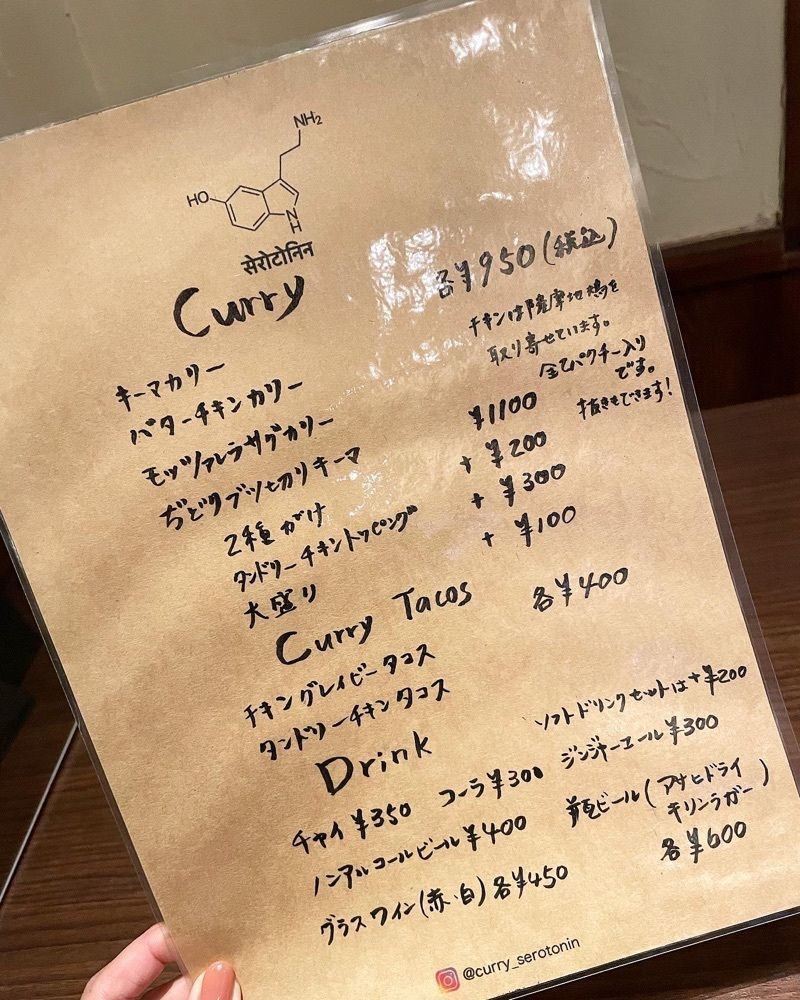 NH₂
HO
N
H
सेरोटोनिन
Curry 各¥950(税込)
チキンは薩摩地鶏を
取り寄せています。
全てパクチー入り
です。
抜きもできます!
キーマカリー
バターチキンカリー
モッツァレラサグカリー
ぢどりブツ切りキーマ ¥1100
2種がけ +¥200
タンドリーチキントッピング +¥300
大盛り +¥100
Curry Tacos 各¥400
チキングレイビータコス
タンドリーチキンタコス
Drink ソフトドリンクセットは+¥200
チャイ¥350 コーラ¥300 ジンジャーエール¥300
ノンアルコールビール¥400 瓶ビール(アサヒドライ
キリンラガー)
各¥600
グラスワイン(赤・白)各¥450
@curry_serotonin